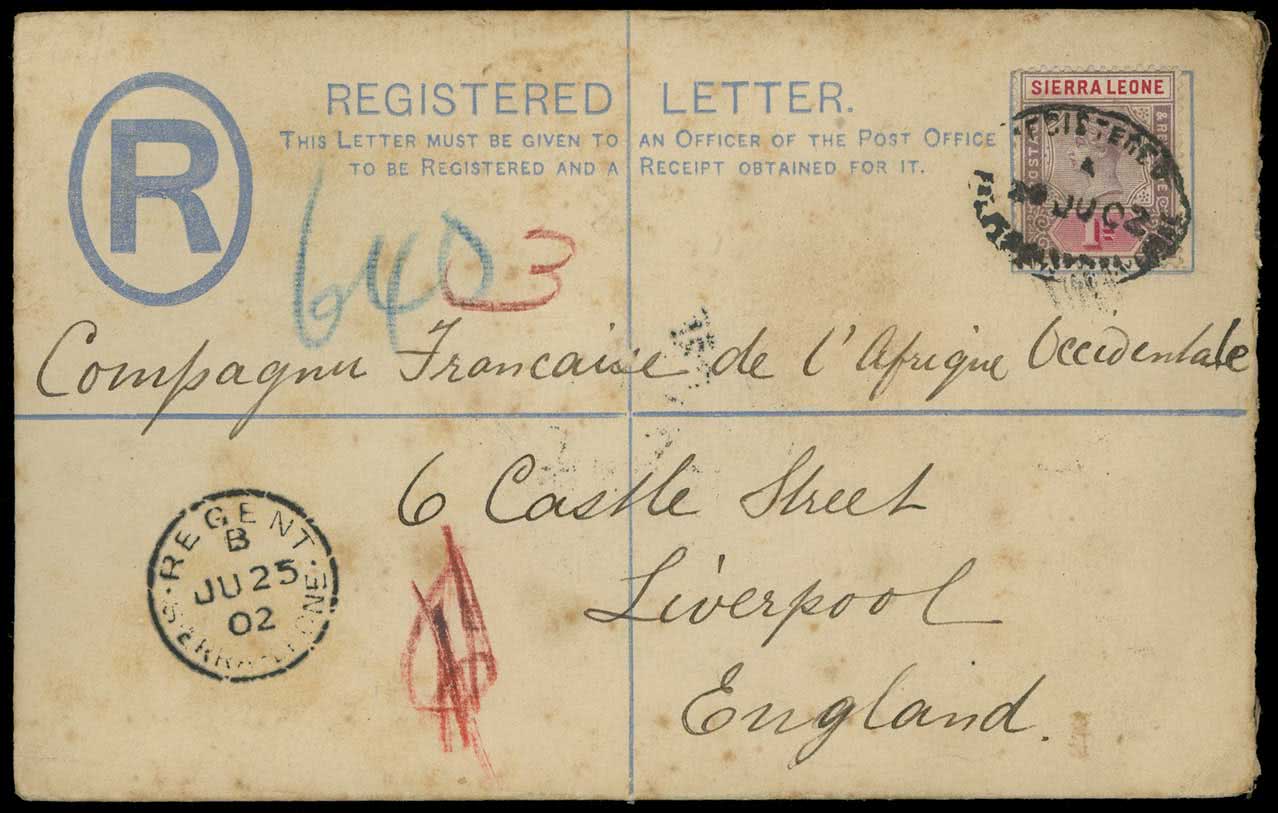 R
REGISTERED LETTER.
THIS LETTER MUST BE GIVEN TO AN OFFICER OF THE POST OFFICE
TO BE REGISTERED AND A RECEIPT OBTAINED FOR IT.
SIERRA LEONE
REGISTERED
JU 02
1
640
3
Compagnie Francaise de l'Afrique Occidentale
6 Castle Street
Liverpool
England.
REGENT
B
JU 25
02
SIERRA-LEONE